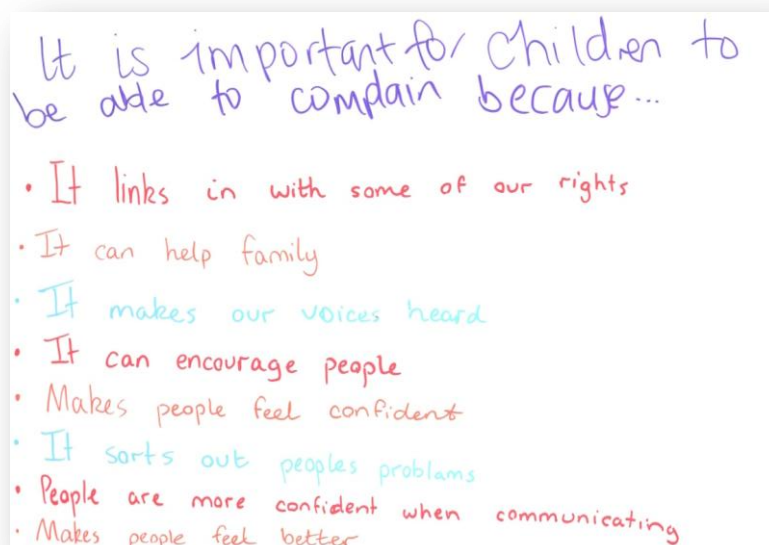 It is important for children to
be able to complain because...
• It links in with some of our rights
• It can help family
• It makes our voices heard
• It can encourage people
• Makes people feel confident
• It sorts out peoples problams
• People are more confident when communicating
• Makes people feel better